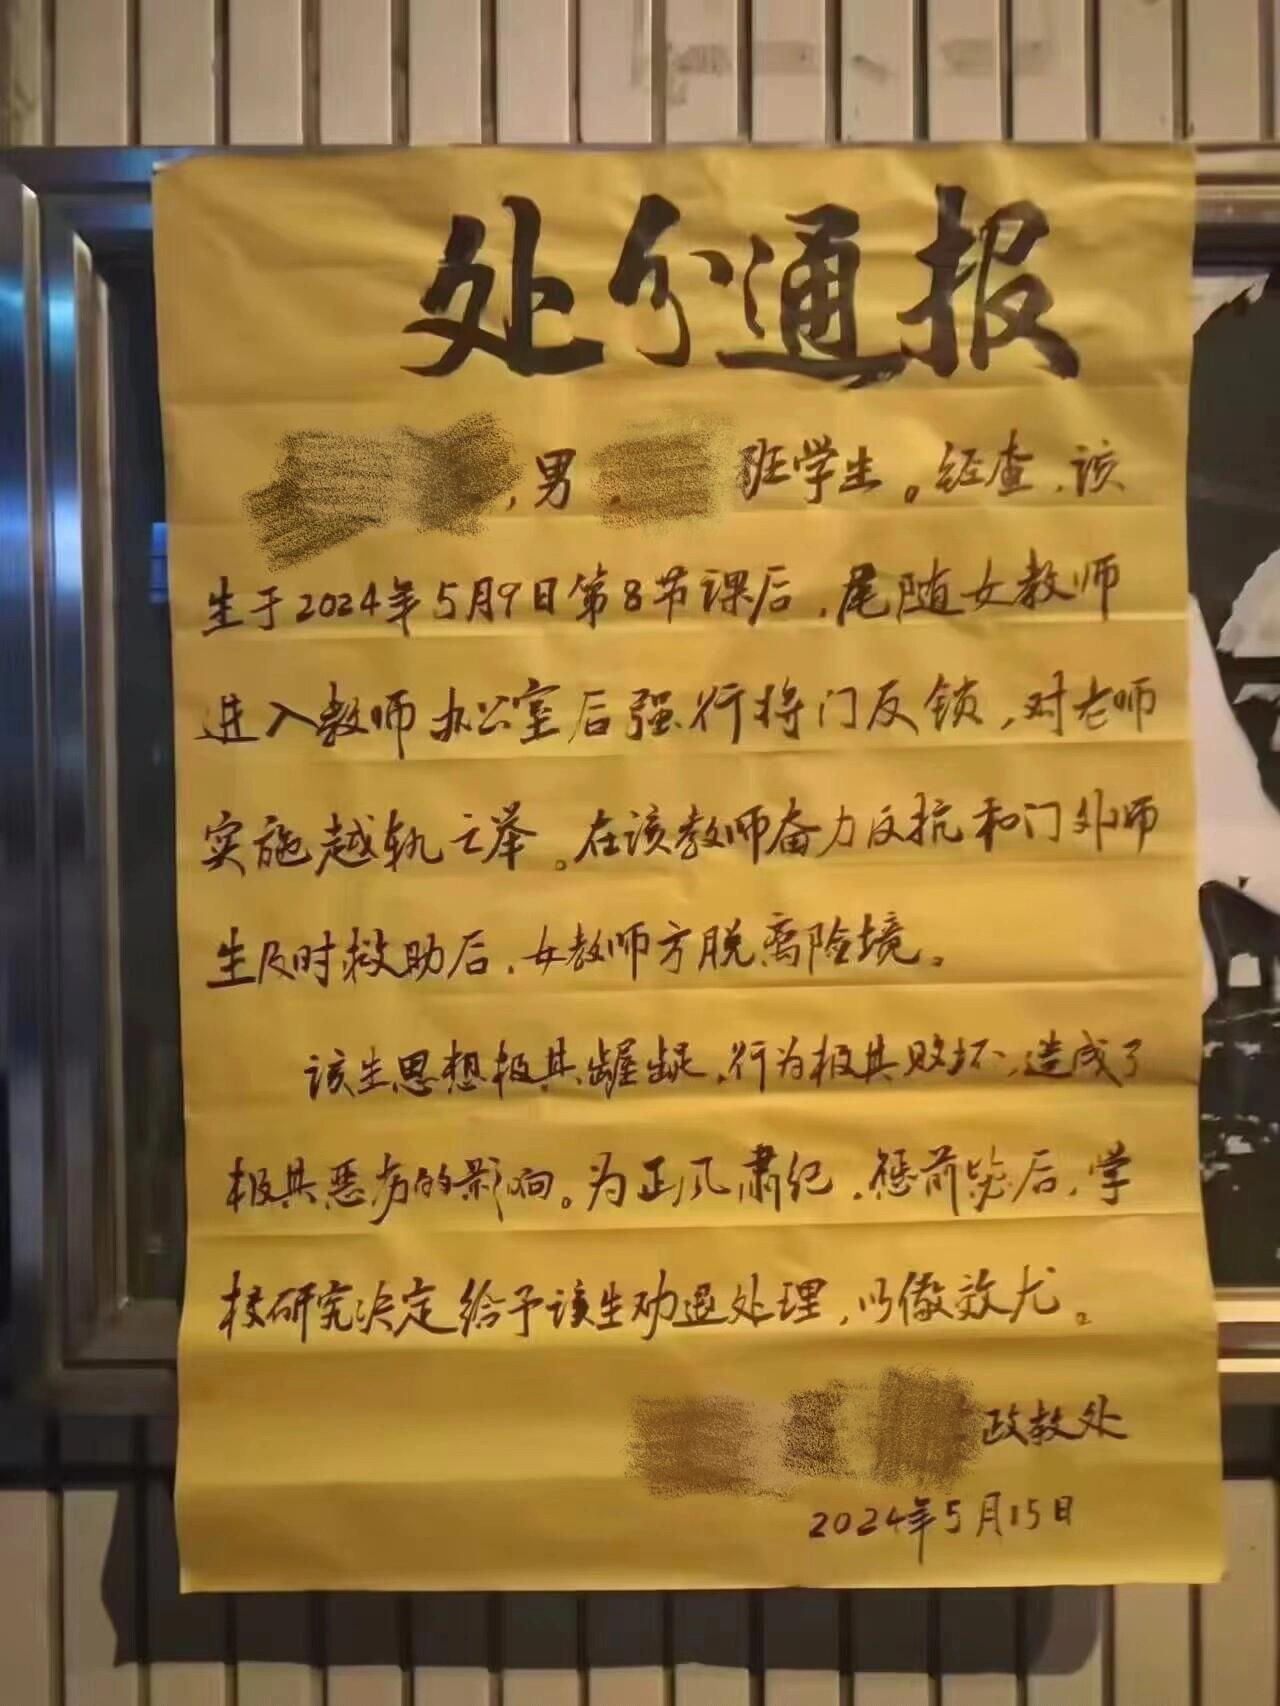 处分通报
，男 班学生。经查，该
生于2024年5月9日第8节课后，尾随女教师
进入教师办公室后强行将门反锁，对老师
实施越轨之举。在该教师奋力反抗和门外师
生及时救助后，女教师方脱离险境。
该生思想极其龌龊，行为极其败坏，造成了
极其恶劣的影响。为正风肃纪，惩前毖后，学
校研究决定给予该生劝退处理，以儆效尤。
政教处
2024年5月15日